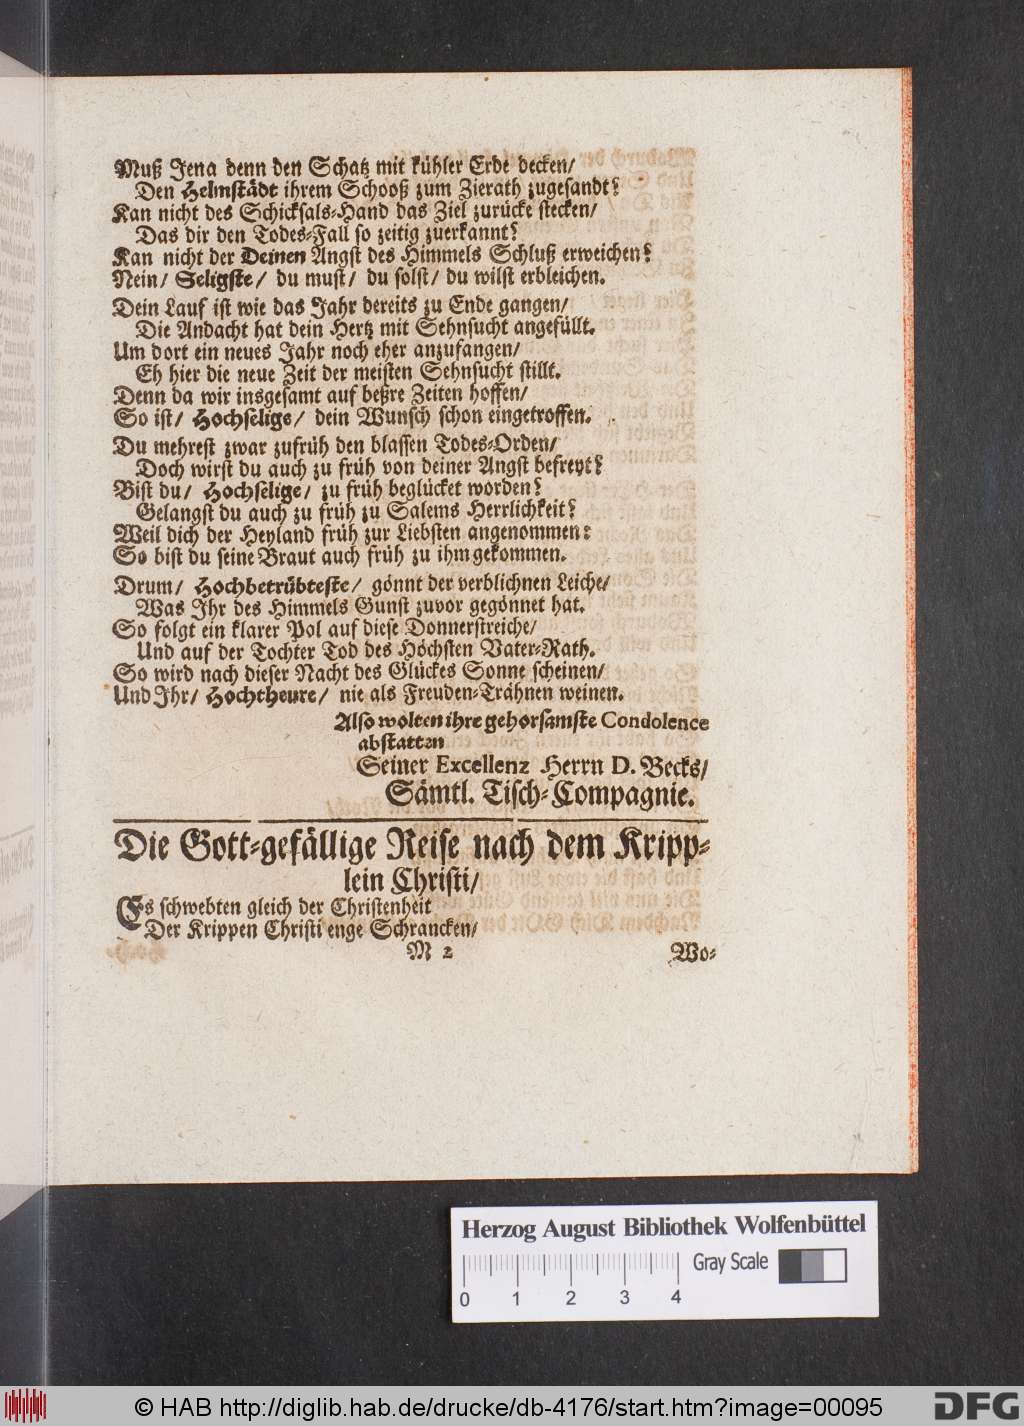 Muß Jena denn den Schatz mit kühler Erde decken/
Den Helmstädt ihrem Schooß zum Zierath zugesandt?
Kan nicht des Schicksals-Hand das Ziel zurücke stecken/
Das dir den Todes-Fall so zeitig zuerkannt?
Kan nicht der Deinen Angst des Himmels Schluß erweichen?
Nein/ Seligste/ du must/ du solst/ du wilst erbleichen.
Dein Lauf ist wie das Jahr bereits zu Ende gangen/
Die Andacht hat dein Hertz mit Sehnsucht angefüllt.
Um dort ein neues Jahr noch eher anzufangen/
Eh hier die neue Zeit der meisten Sehnsucht stillt.
Denn da wir insgesamt auf beßre Zeiten hoffen/
So ist/ Hochselige/ dein Wunsch schon eingetroffen.
Du mehrest zwar zufrüh den blassen Todes-Orden/
Doch wirst du auch zu früh von deiner Angst befreyt?
Bist du/ Hochselige/ zu früh beglücket worden?
Gelangst du auch zu früh zu Salems Herrlichkeit?
Weil dich der Heyland früh zur Liebsten angenommen:
So bist du seine Braut auch früh zu ihm gekommen.
Drum/ Hochbetrübteste/ gönnt der verblichnen Leiche/
Was Ihr des Himmels Gunst zuvor gegönnet hat.
So folgt ein klarer Pol auf diese Donnerstreiche/
Und auf der Tochter Tod des Höchsten Vater-Rath.
So wird nach dieser Nacht des Glückes Sonne scheinen/
Und Ihr/ Hochtheure/ nie als Freuden-Trähnen weinen.
Also wolten ihre gehorsamste Condolence
abstatten
Seiner Excellenz Herrn D. Becks/
Sämtl. Tisch-Compagnie.
Die Gott-gefällige Reise nach dem Kripp-
lein Christi/
Es schwebten gleich der Christenheit
Der Krippen Christi enge Schrancken/
M 2 Wo-
Herzog August Bibliothek Wolfenbüttel
Gray Scale
0 1 2 3 4
© HAB http://diglib.hab.de/drucke/db-4176/start.htm?image=00095
DFG